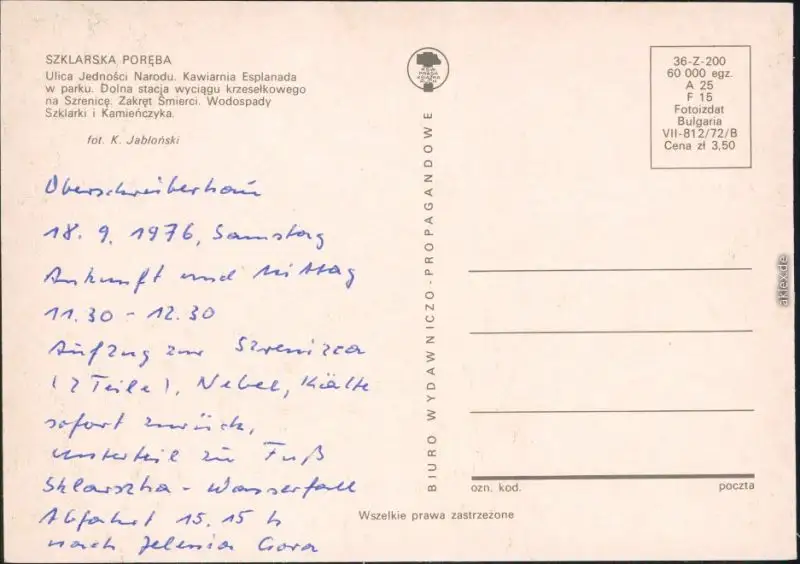 SZKLARSKA PORĘBA
Ulica Jedności Narodu. Kawiarnia Esplanada
w parku. Dolna stacja wyciągu krzesełkowego
na Szrenicę. Zakręt Śmierci. Wodospady
Szklarki i Kamieńczyka.
fot. K. Jabłoński
Oberschreiberhau
18. 9. 1976, Samstag
Ankunft und Mittag
11.30 - 12.30
Aufzug zur Szrenicca
(2 Teile), Nebel, Kälte
sofort zurück,
Unterteil zu Fuß
Sklarszka - Wasserfall
Abfahrt 15.15 h
nach Jelenia Gora
BIURO WYDAWNICZO-PROPAGANDOWE
36-Z-200
60 000 egz.
A 25
F 15
Fotoizdat
Bulgaria
VII-812/72/B
Cena zł 3,50
ozn. kod.
poczta
Wszelkie prawa zastrzeżone
akpool.de